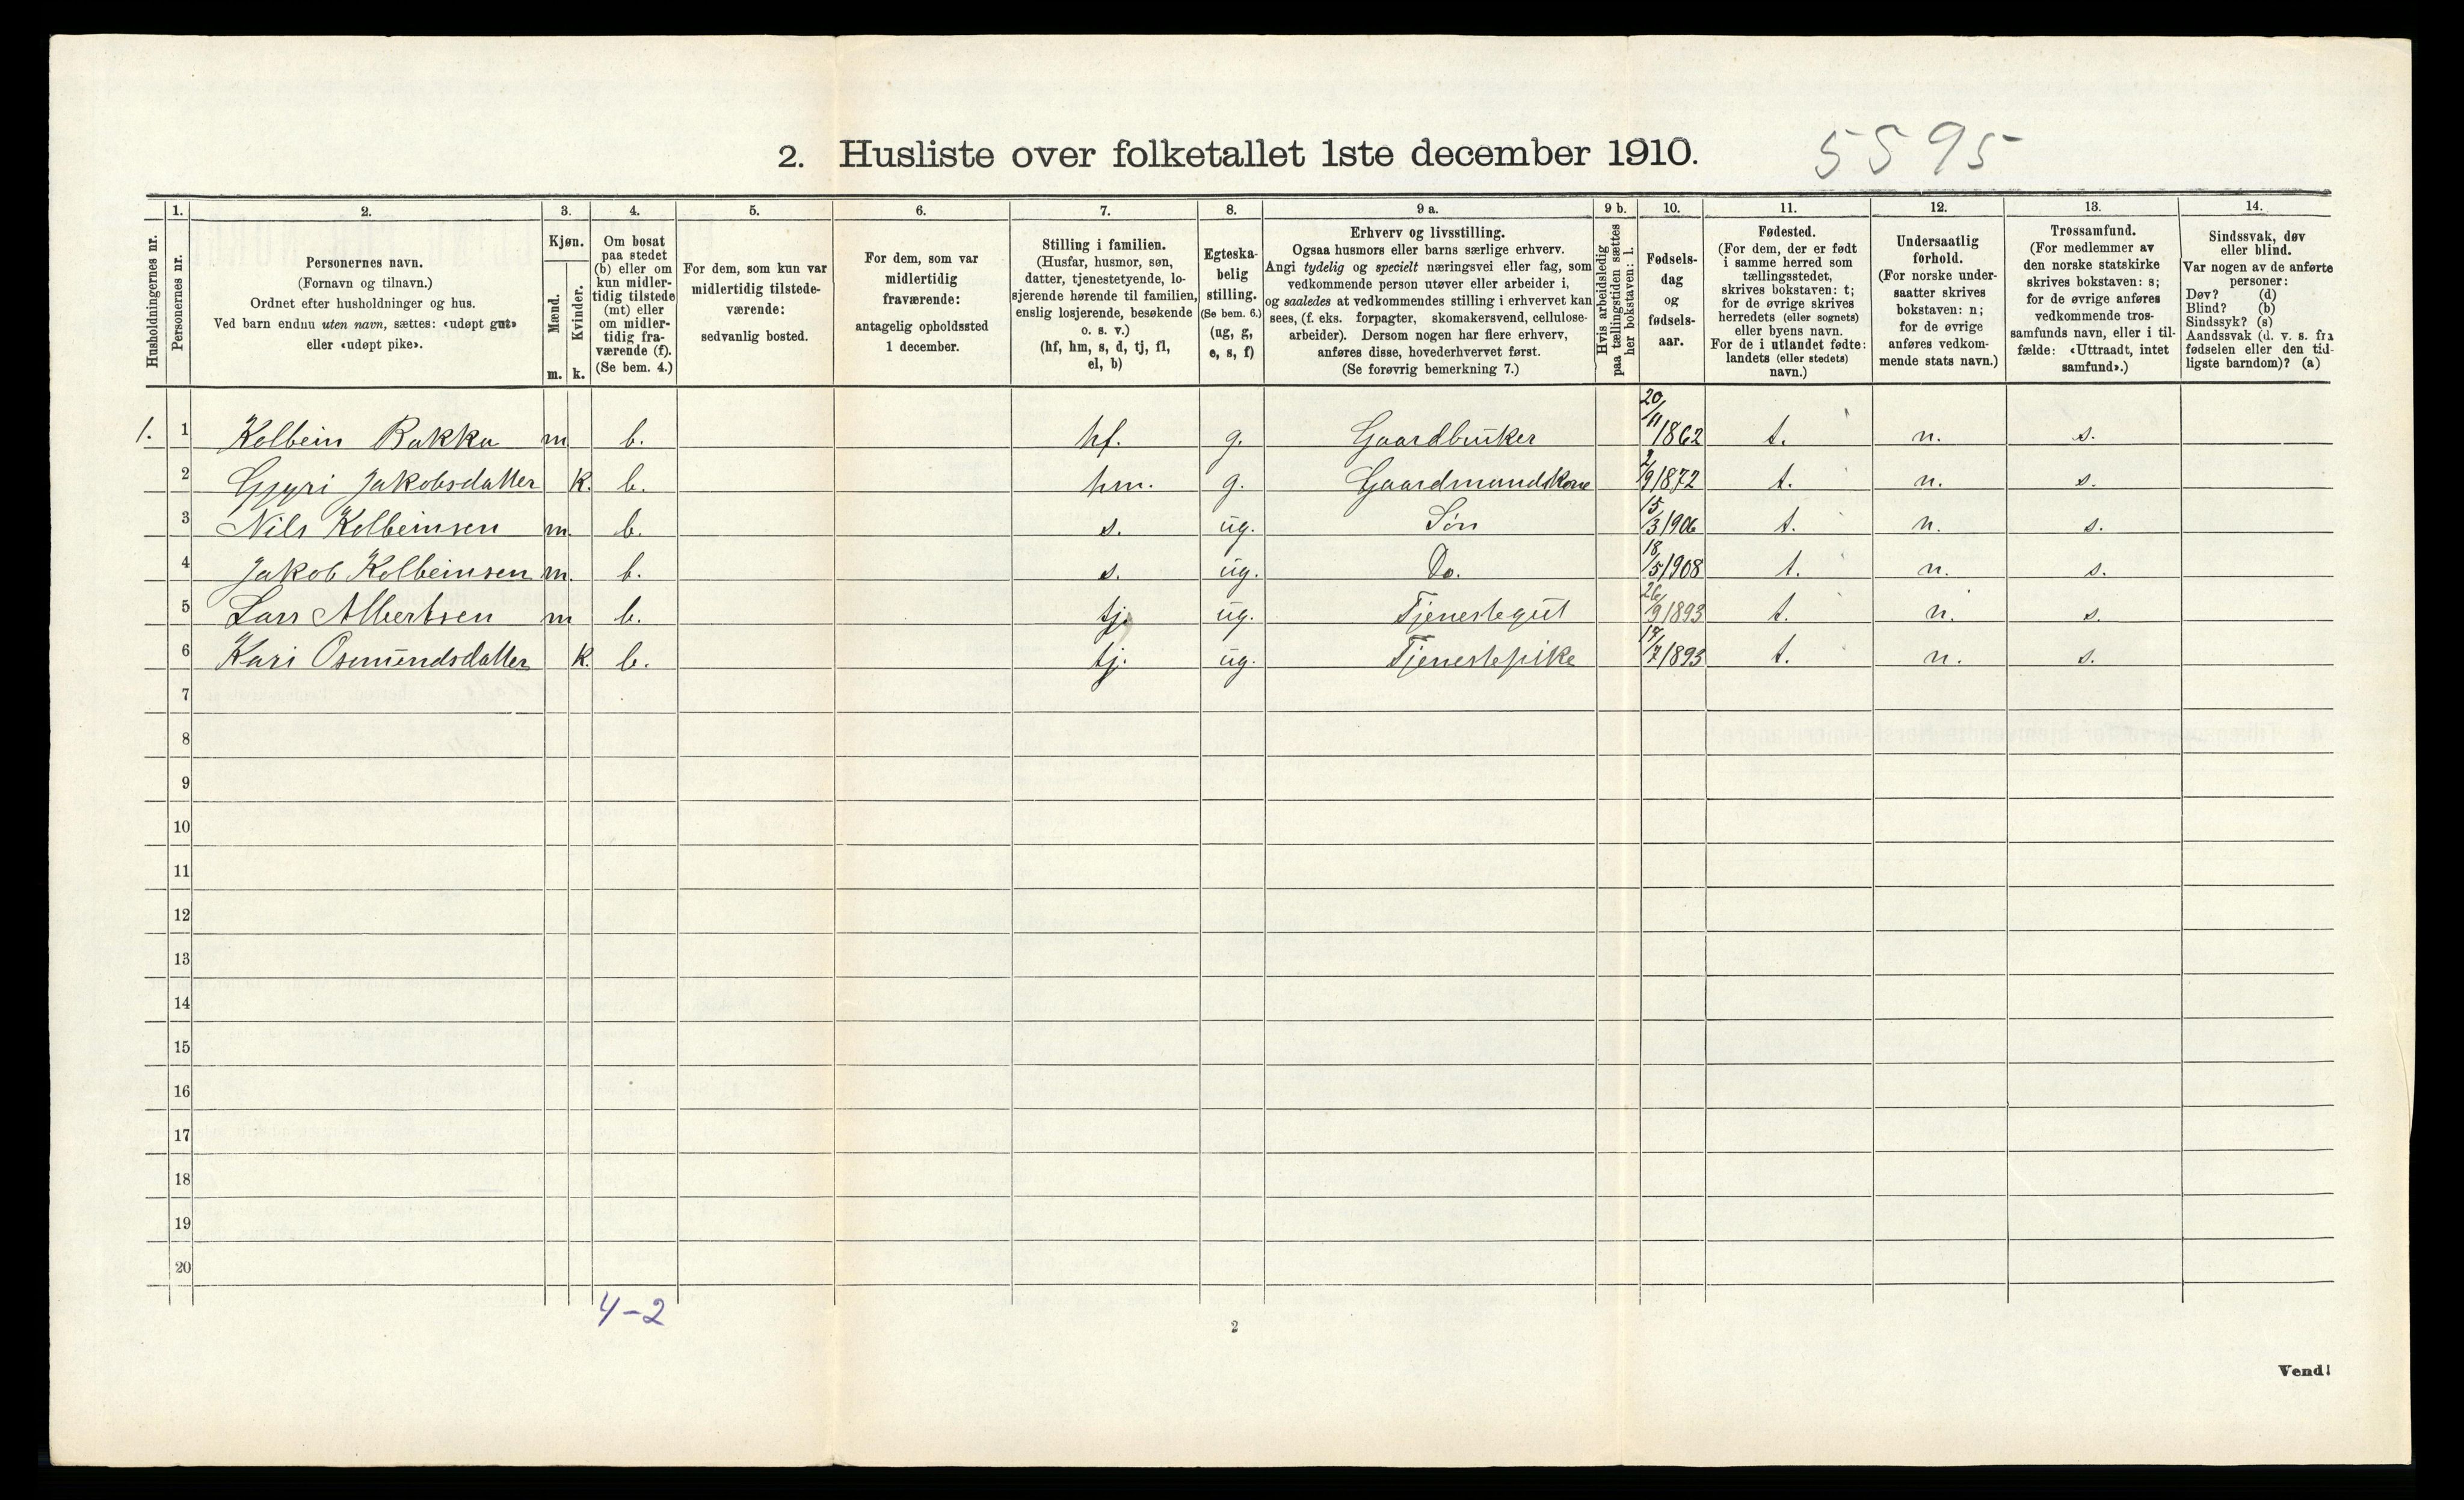 5595
2. Husliste over folketallet 1ste december 1910.
Husholdningernes nr.
1.
Personernes nr.
2.
Personernes navn.
(Fornavn og tilnavn.)
Ordnet efter husholdninger og hus.
Ved barn endnu uten navn, sættes: «udøpt gut»
eller «udøpt pike».
3.
Kjøn.
Mænd.
m.
Kvinder.
k.
4.
Om bosat
paa stedet
(b) eller om
kun midler-
tidig tilstede
(mt) eller
om midler-
tidig fra-
værende (f).
(Se bem. 4.)
5.
For dem, som kun var
midlertidig tilstede-
værende:
sedvanlig bosted.
6.
For dem, som var
midlertidig
fraværende:
antagelig opholdssted
1 december.
7.
Stilling i familien.
(Husfar, husmor, søn,
datter, tjenestetyende, lo-
sjerende hørende til familien,
enslig losjerende, besøkende
o. s. v.)
(hf, hm, s, d, tj, fl,
el, b)
8.
Egteska-
belig
stilling.
(Se bem. 6.)
(ug, g,
e, s, f)
9 a.
Erhverv og livsstilling.
Ogsaa husmors eller barns særlige erhverv.
Angi tydelig og specielt næringsvei eller fag, som
vedkommende person utøver eller arbeider i,
og saaledes at vedkommendes stilling i erhvervet kan
sees, (f. eks. forpagter, skomakersvend, cellulose-
arbeider). Dersom nogen har flere erhverv,
anføres disse, hovederhvervet først.
(Se forøvrig bemerkning 7.)
9 b.
Hvis arbeidsledig
paa tællingstiden sættes
her bokstaven: l.
10.
Fødsels-
dag
og
fødsels-
aar.
11.
Fødested.
(For dem, der er født
i samme herred som
tællingsstedet,
skrives bokstaven: t;
for de øvrige skrives
herredets (eller sognets)
eller byens navn.
For de i utlandet fødte:
landets (eller stedets)
navn.)
12.
Undersaatlig
forhold.
(For norske under-
saatter skrives
bokstaven: n;
for de øvrige
anføres vedkom-
mende stats navn.)
13.
Trossamfund.
(For medlemmer av
den norske statskirke
skrives bokstaven: s;
for de øvrige anføres
vedkommende tros-
samfunds navn, eller i til-
fælde: «Uttraadt, intet
samfund».)
14.
Sindssvak, døv
eller blind.
Var nogen av de anførte
personer:
Døv? (d)
Blind? (b)
Sindssyk? (s)
Aandssvak (d. v. s. fra
fødselen eller den tid-
ligste barndom)? (a)
1. 1 Kolbein Rakka m b. hf. g. Gaardbruker 20/11 1862 t. n. s.
2 Gjyri Jakobsdatter k. b. hm. g. Gaardmandskone 2/9 1872 t. n. s.
3 Nils Kolbeinsen m. b. s. ug. Søn 15/3 1906 t. n. s.
4 Jakob Kolbeinsen m. b. s. ug. Do. 18/5 1908 t. n. s.
5 Lars Albertsen m b. tj. ug. Tjenestegut 26/9 1893 t. n. s.
6 Kari Osmundsdatter k. b. tj. ug. Tjenestepike 17/7 1893 t. n. s.
7
8
9
10
11
12
13
14
15
16
17
18
19
20
4-2
2
Vend!